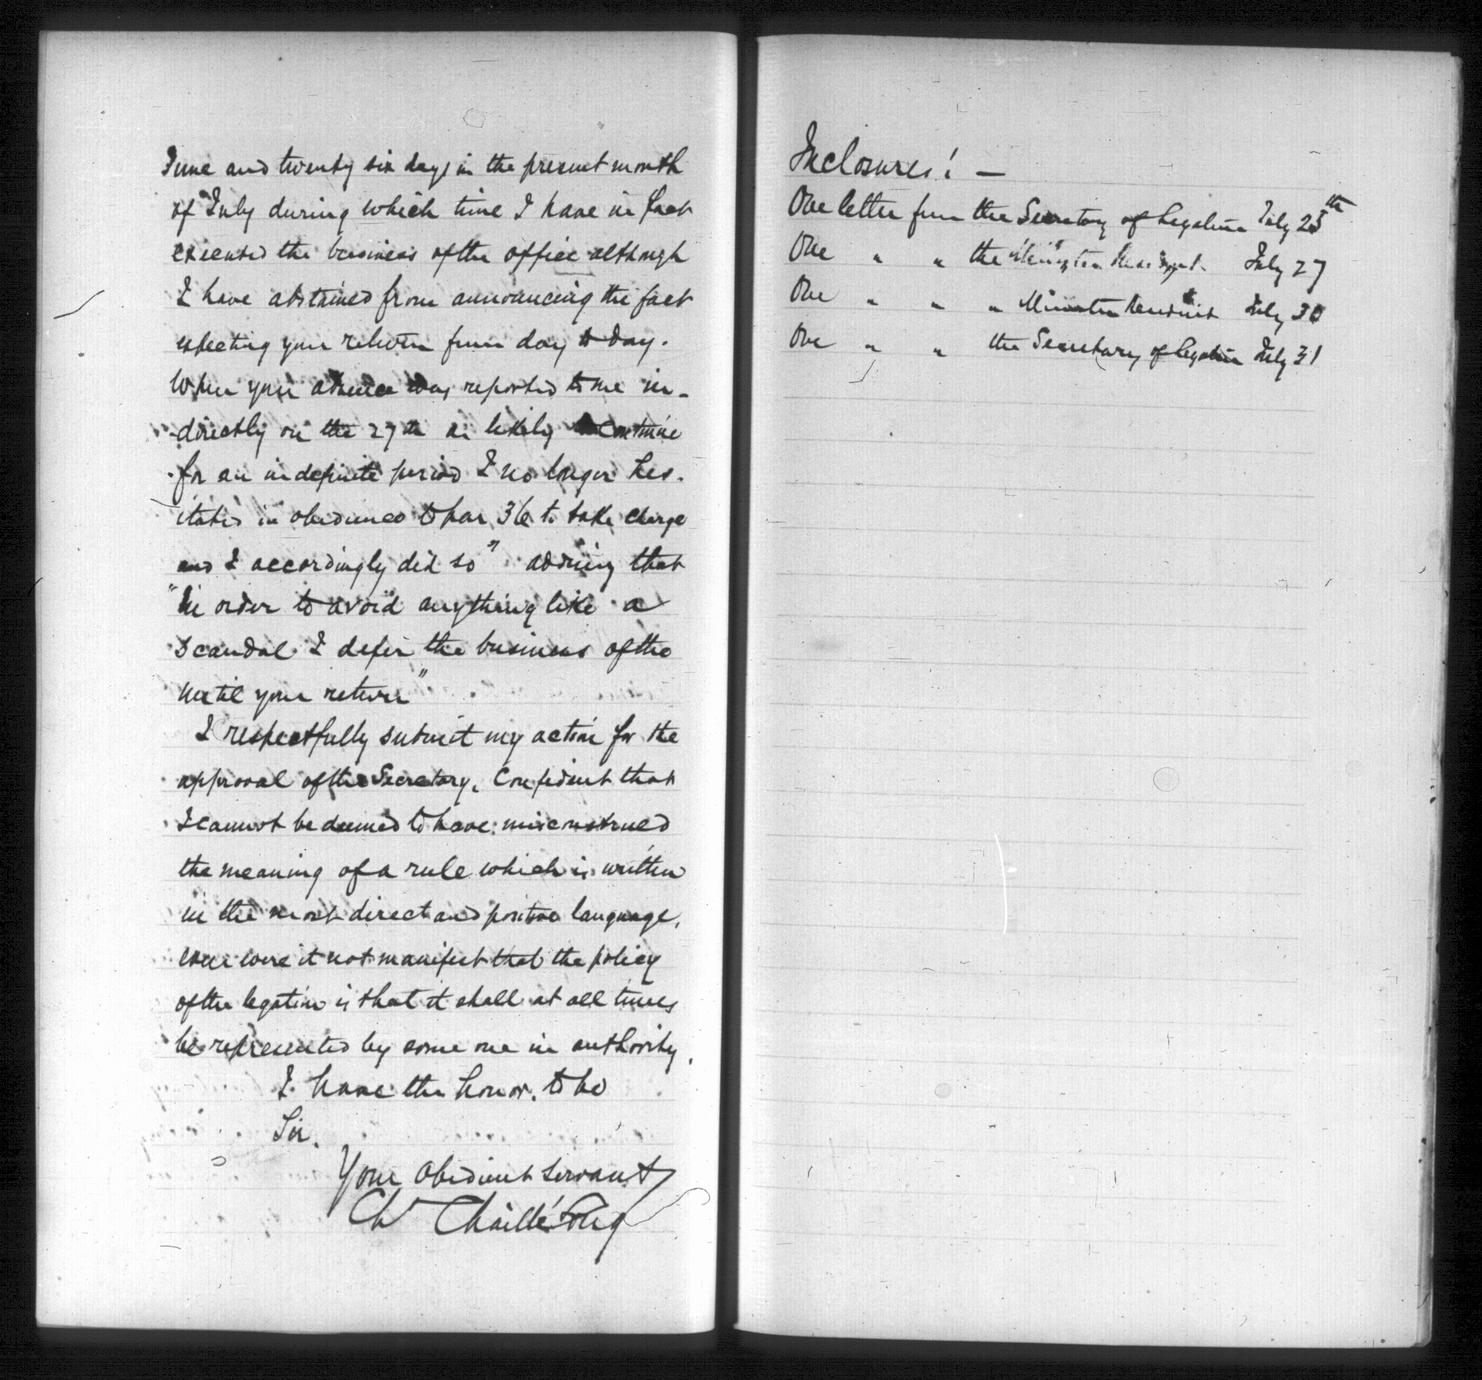 June and twenty six days in the present month
of July during which time I have in fact
executed the business of the office although
I have abstained from announcing the fact
expecting your return from day to day.
When your absence was reported to me in-
directly on the 27th as likely to continue
for an indefinite period I no longer hes-
itated in obedience to par 36 to take charge
and I accordingly did so" adding that
"In order to avoid anything like a
scandal I defer the business of the
until your return"
I respectfully submit my action for the
approval of the Secretary. Confident that
I cannot be deemed to have misconstrued
the meaning of a rule which is written
in the most direct and positive language,
even were it not manifest that the policy
of the legation is that it shall at all times
be represented by some one in authority.
I have the honor. to be
Sir.
Your obedient servant
Ch Chaillé Long
Inclosures! —
One letter from the Secretary of Legation July 25th
One " " the Minister Resident July 27
One " " " Minister Resident July 30
One " " the Secretary of Legation July 31